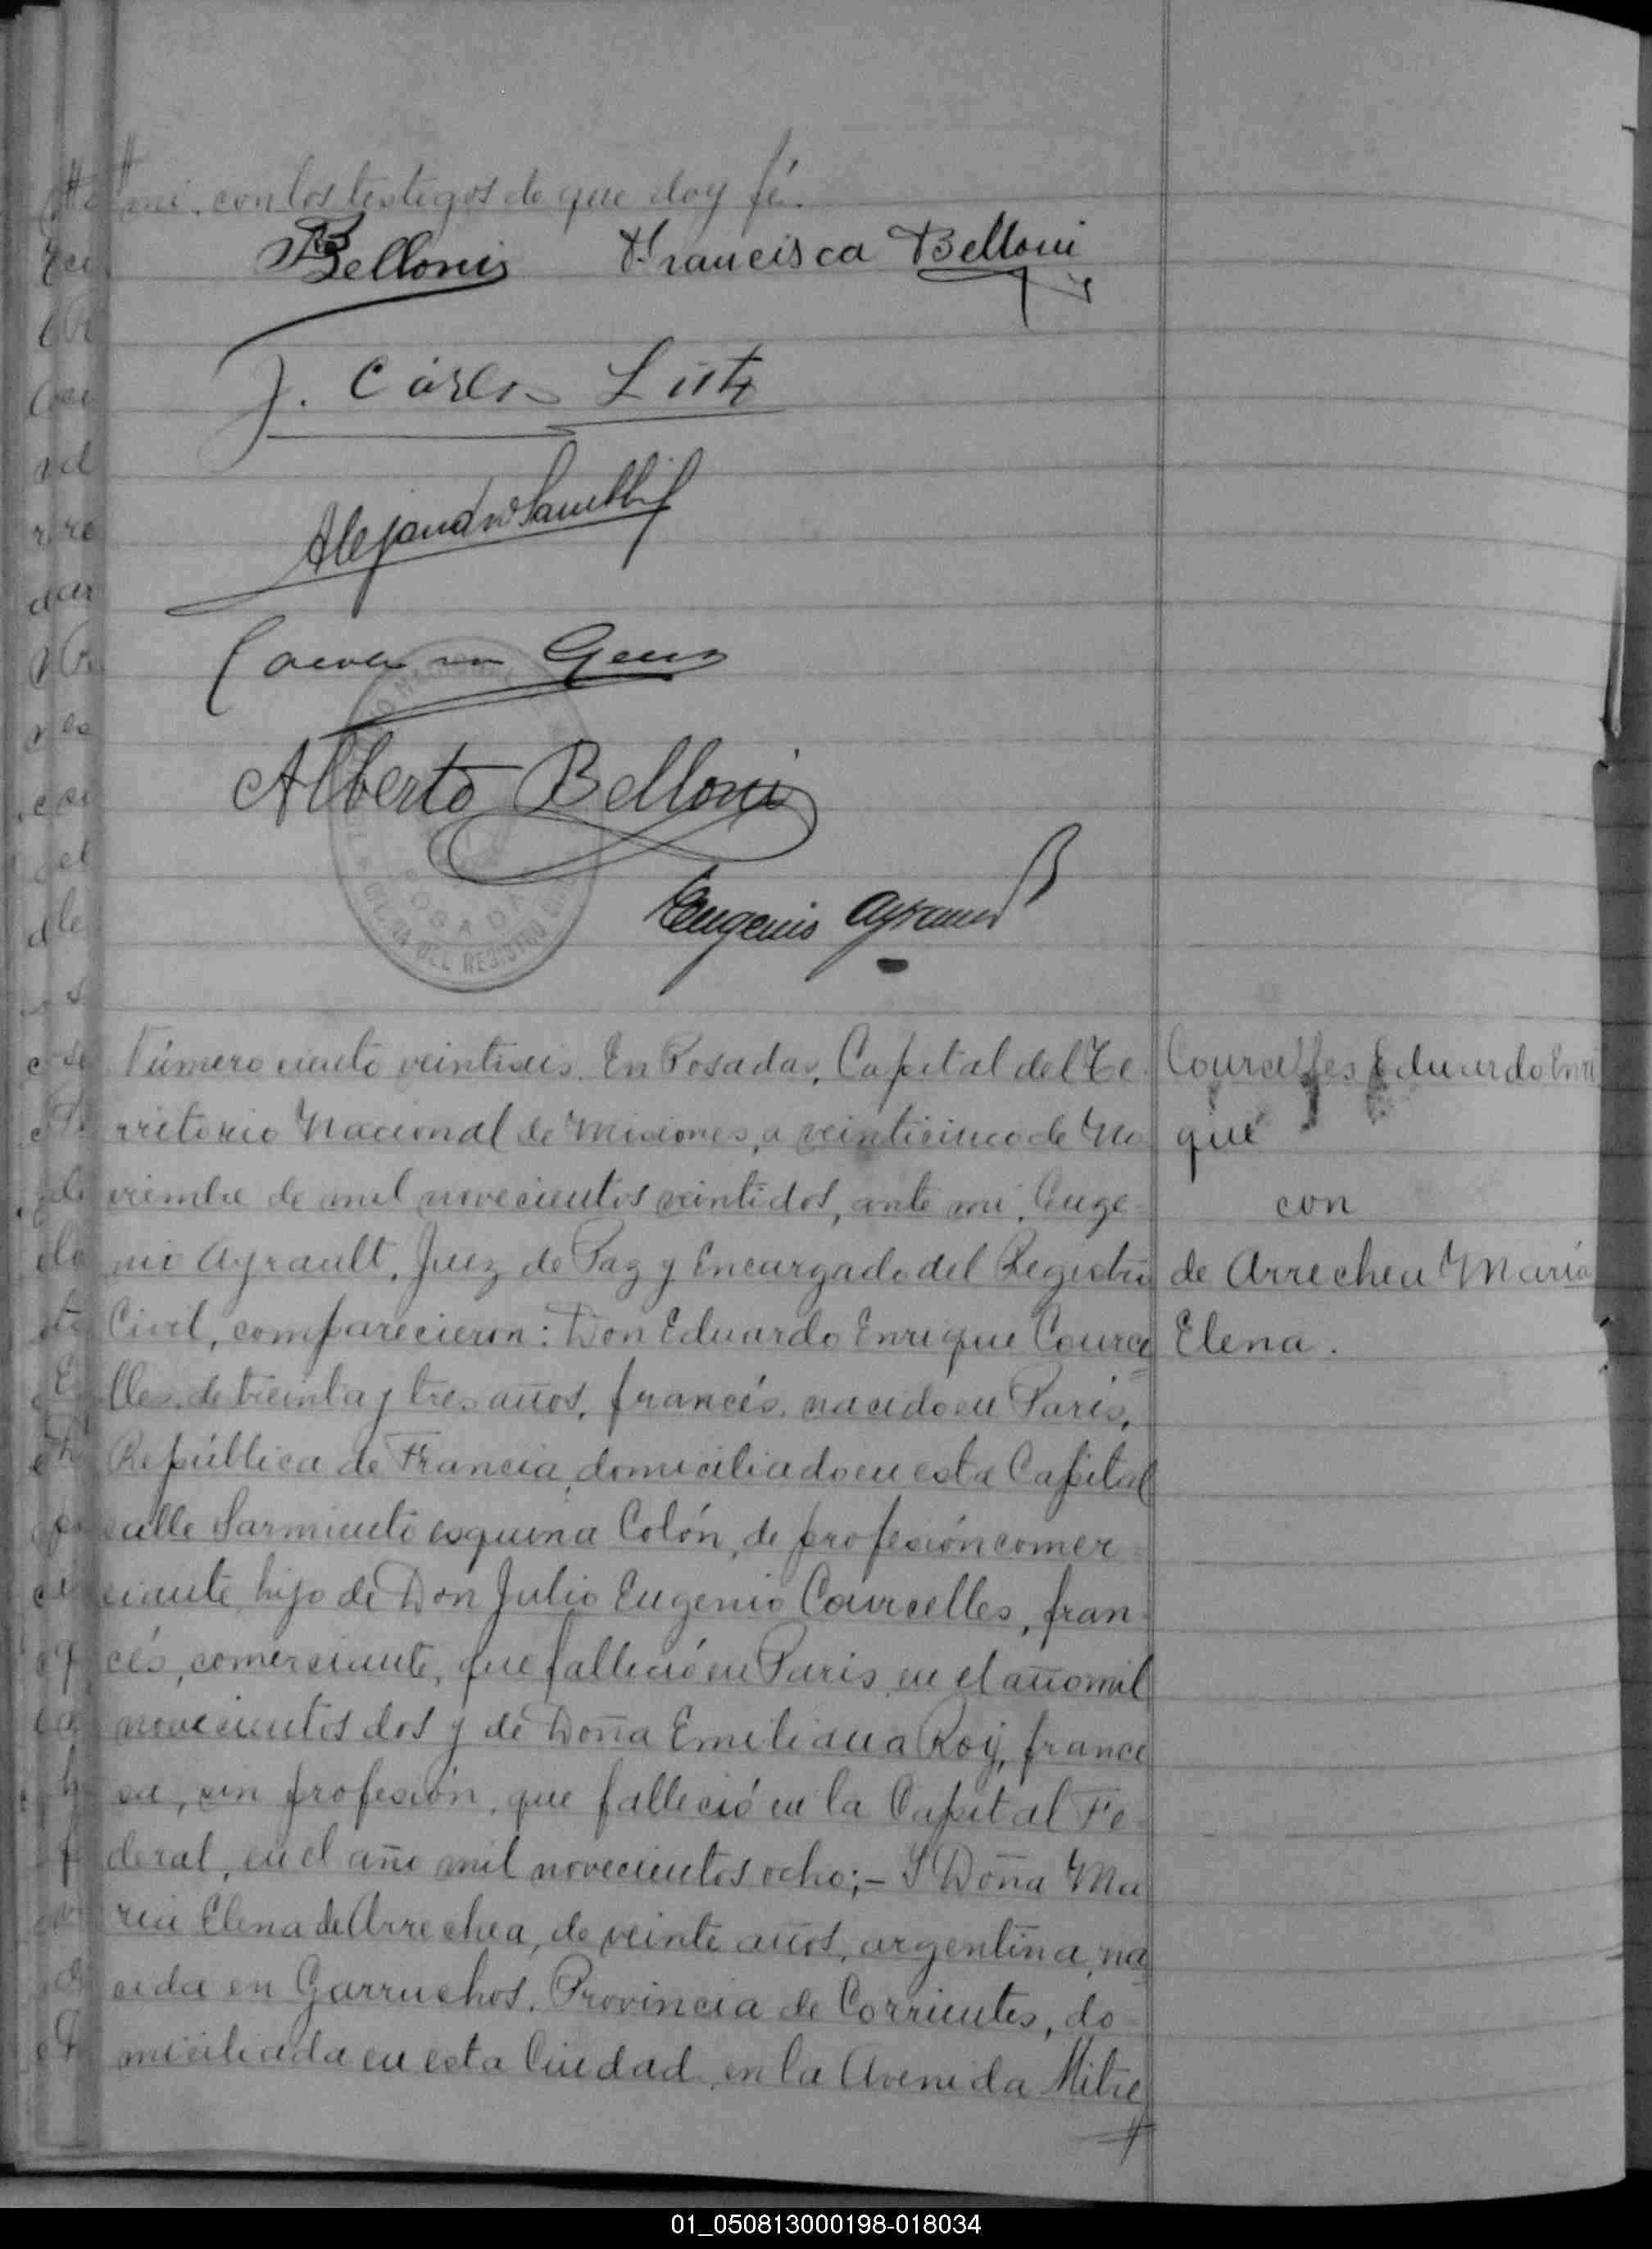 mi, con los testigos de que doy fé.
Belloni Francisca Belloni
J. Cárlos
Alejandro
Alberto Belloni
Eugenio Ayrault
POSADAS
DEL REGISTRO
Número ciento veintiseis. En Posadas, Capital del Te-
rritorio Nacional de Misiones, a veinticinco de No-
viembre de mil novecientos veintidos, ante mi, Euge-
nio Ayrault, Juez de Paz y Encargado del Registro
Civil, comparecieron: Don Eduardo EnriqueOurce
lles, de treinta y tres años, francés, nacido en Paris,
República de Francia, domiciliado en esta Capital
calle Sarmiento esquina Colón, de profesión comer-
ciante, hijo de Don Julio Eugenio Courcelles, fran-
cés, comerciante, que falleció en Paris, en el año mil
novecientos dos y de Doña Emiliana Roy, france
sa, sin profesión, que falleció en la Capital Fe-
deral, en el año mil novecientos ocho;- Y Doña Ma
ria Elena de Arrechea, de veinte años, argentina, na
cida en Garruchos, Provincia de Corrientes, do-
miciliada en esta Ciudad, en la Avenida Mitre
Courcelles Eduardo Enri
que
con
de Arrechea María
Elena.
01_050813000198-018034